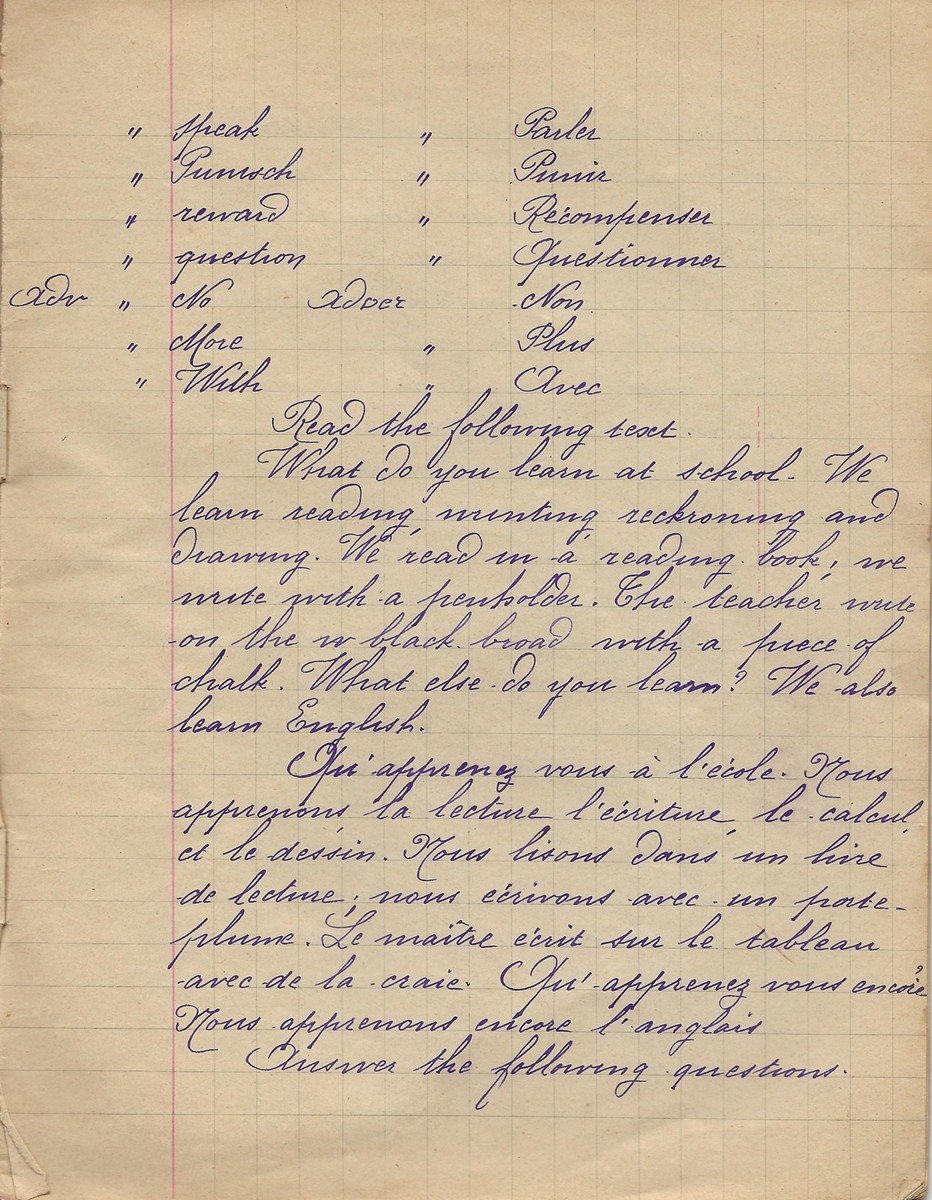 " speak " Parler
" Punisch " Punir
" reward " Récompenser
" question " Questionner
Adv " No Adver Non
" More " Plus
" With " Avec
Read the following text.
What do you learn at school. We
learn reading, wrinting reckroning and
drawing. We read in a reading book, we
write with a penholder. The teacher write
on the w black broad with a piece of
chalk. What else do you learn? We also
learn English.
Qu'apprenez vous à l'école. Nous
apprenons la lecture l'écriture, le calcul,
et le dessin. Nous lisons dans un livre
de lecture; nous écrivons avec un porte-
plume. Le maître écrit sur le tableau
avec de la craie. Qu'apprenez vous encore?
Nous apprenons encore l'anglais
Answer the following questions.